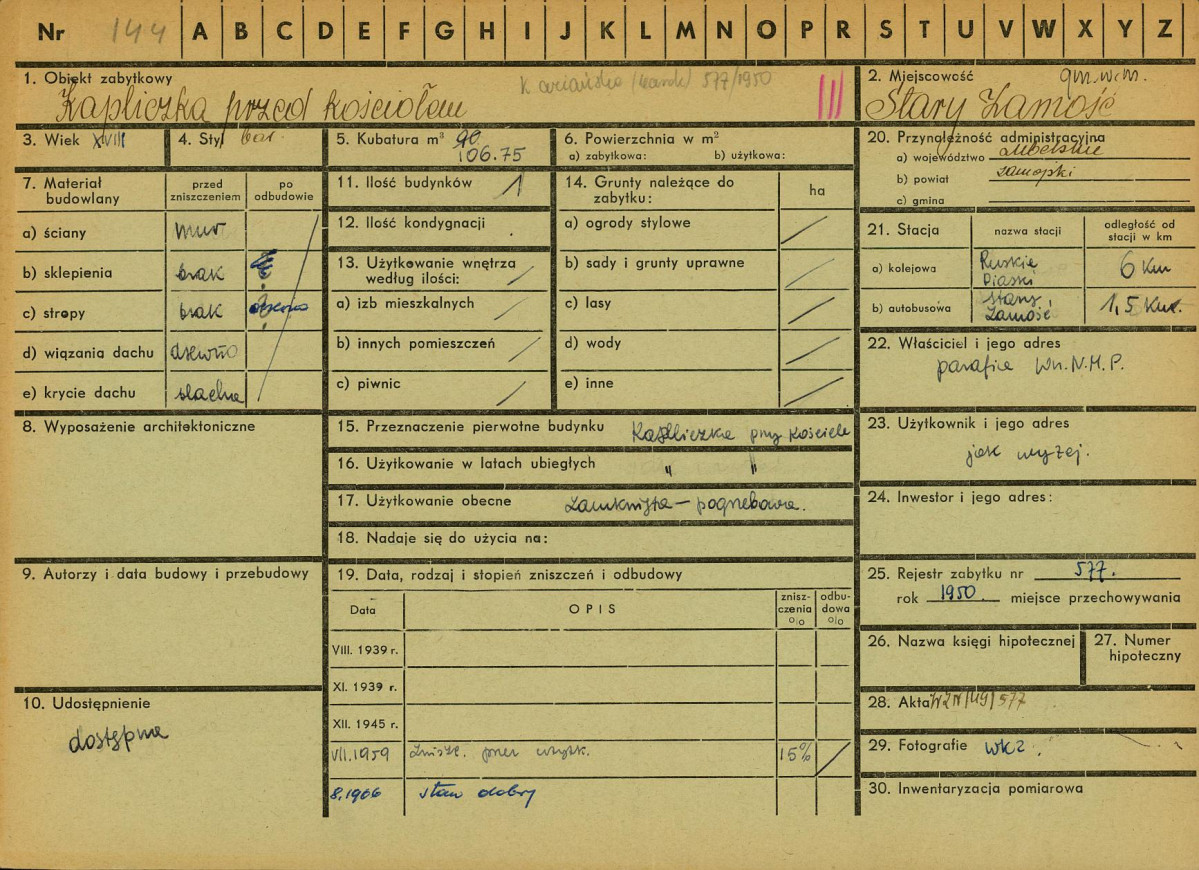 Nr 144 A B C D E F G H I J K L M N O P R S T U V W X Y Z
1. Obiekt zabytkowy
577/1950
Kapliczka przed kościołem
2. Miejscowość gm. w m.
Stary Zamość
3. Wiek XVIII
4. Styl bar.
5. Kubatura m³ 90
106.75
6. Powierzchnia w m²
a) zabytkowa: b) użytkowa:
7. Materiał budowlany
przed zniszczeniem
po odbudowie
a) ściany mur
b) sklepienia brak
c) stropy brak
d) wiązania dachu drewno
e) krycie dachu blacha
8. Wyposażenie architektoniczne
9. Autorzy i data budowy i przebudowy
10. Udostępnienie
dostępna
11. Ilość budynków 1
12. Ilość kondygnacji
13. Użytkowanie wnętrza
według ilości:
a) izb mieszkalnych
b) innych pomieszczeń
c) piwnic
14. Grunty należące do
zabytku:
ha
a) ogrody stylowe
b) sady i grunty uprawne
c) lasy
d) wody
e) inne
15. Przeznaczenie pierwotne budynku Kapliczka przy kościele
16. Użytkowanie w latach ubiegłych " "
17. Użytkowanie obecne zamknięta – pogrzebowa.
18. Nadaje się do użycia na:
19. Data, rodzaj i stopień zniszczeń i odbudowy
Data OPIS znisz-czenia o/o odbu-dowa o/o
VIII. 1939 r.
XI. 1939 r.
XII. 1945 r.
VII.1959 zniszcz. przez użytk. 15%
8.1966 stan dobry
20. Przynależność administracyjna
a) województwo lubelskie
b) powiat zamojski
c) gmina
21. Stacja nazwa stacji odległość od stacji w km
a) kolejowa Ruskie Piaski 6 km
b) autobusowa Stary Zamość 1,5 km.
22. Właściciel i jego adres
parafia Wn.N.M.P.
23. Użytkownik i jego adres
jak wyżej.
24. Inwestor i jego adres:
25. Rejestr zabytku nr 577.
rok 1950. miejsce przechowywania
26. Nazwa księgi hipotecznej
27. Numer
hipoteczny
28. Akta
29. Fotografie WKZ.
30. Inwentaryzacja pomiarowa